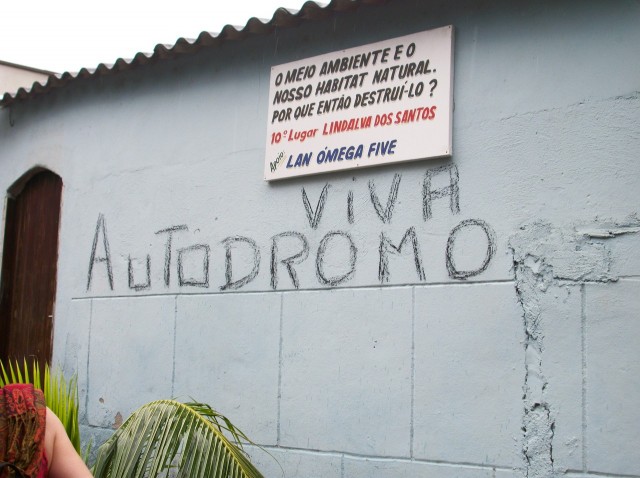 O MEIO AMBIENTE E O
NOSSO HABITAT NATURAL.
POR QUE ENTÃO DESTRUÍ-LO ?
10º Lugar LINDALVA DOS SANTOS
Apoio: LAN ÔMEGA FIVE
VIVA
AUTODROMO